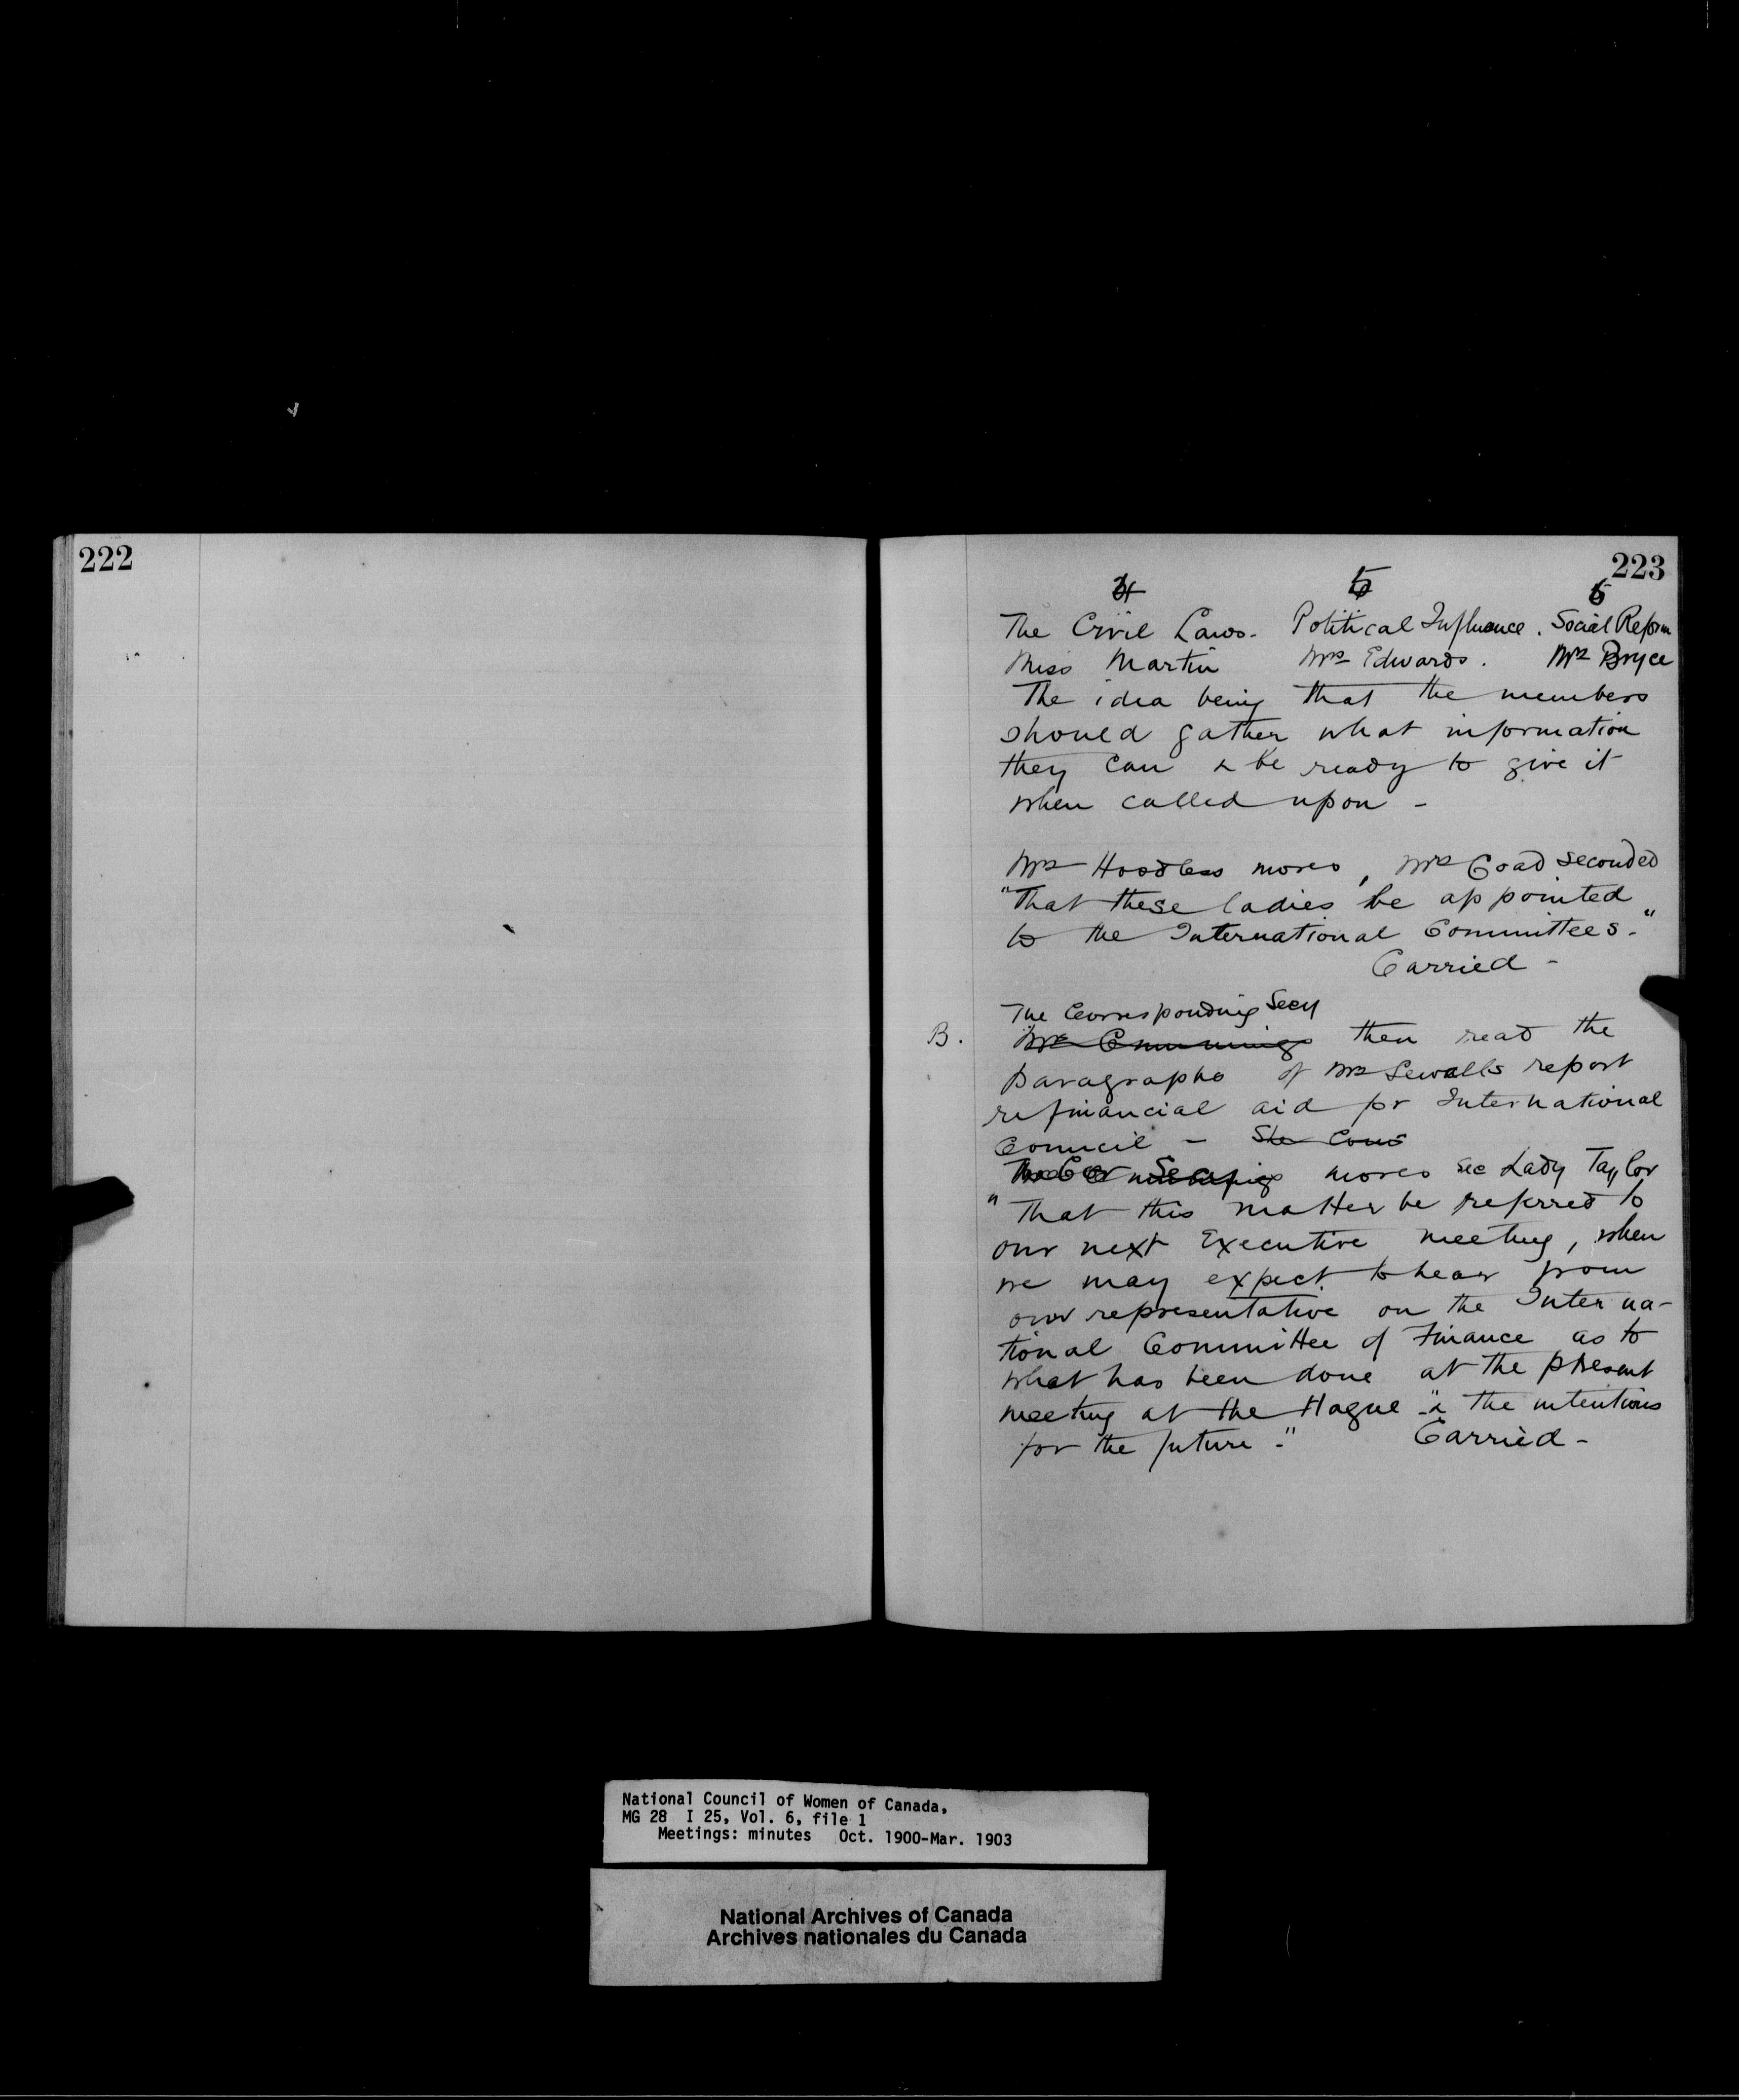 222
223
4 5 6
The Civil Laws. Political Influence. Social Reform
Miss Martin Mrs Edwards. Mrs Bryce
The idea being that the members
should gather what information
they can & be ready to give it
when called upon -
Mrs Hoodless moves, Mrs Coad seconded
"That these ladies be appointed
to the International Committees."
Carried -
The Corresponding Secy
B. Mrs Cummings then read the
paragraphs of Mrs Sewalls report
re financial aid for International
Council - She Coun
moves sec Lady Taylor
"That this matter be referred to
our next Executive meeting, when
we may expect to hear from
our representative on the Interna-
tional Committee of Finance as to
what has been done at the present
meeting at the Hague & the intentions
for the future." Carried -
National Council of Women of Canada,
MG 28 I 25, Vol. 6, file 1
Meetings: minutes Oct. 1900-Mar. 1903
National Archives of Canada
Archives nationales du Canada